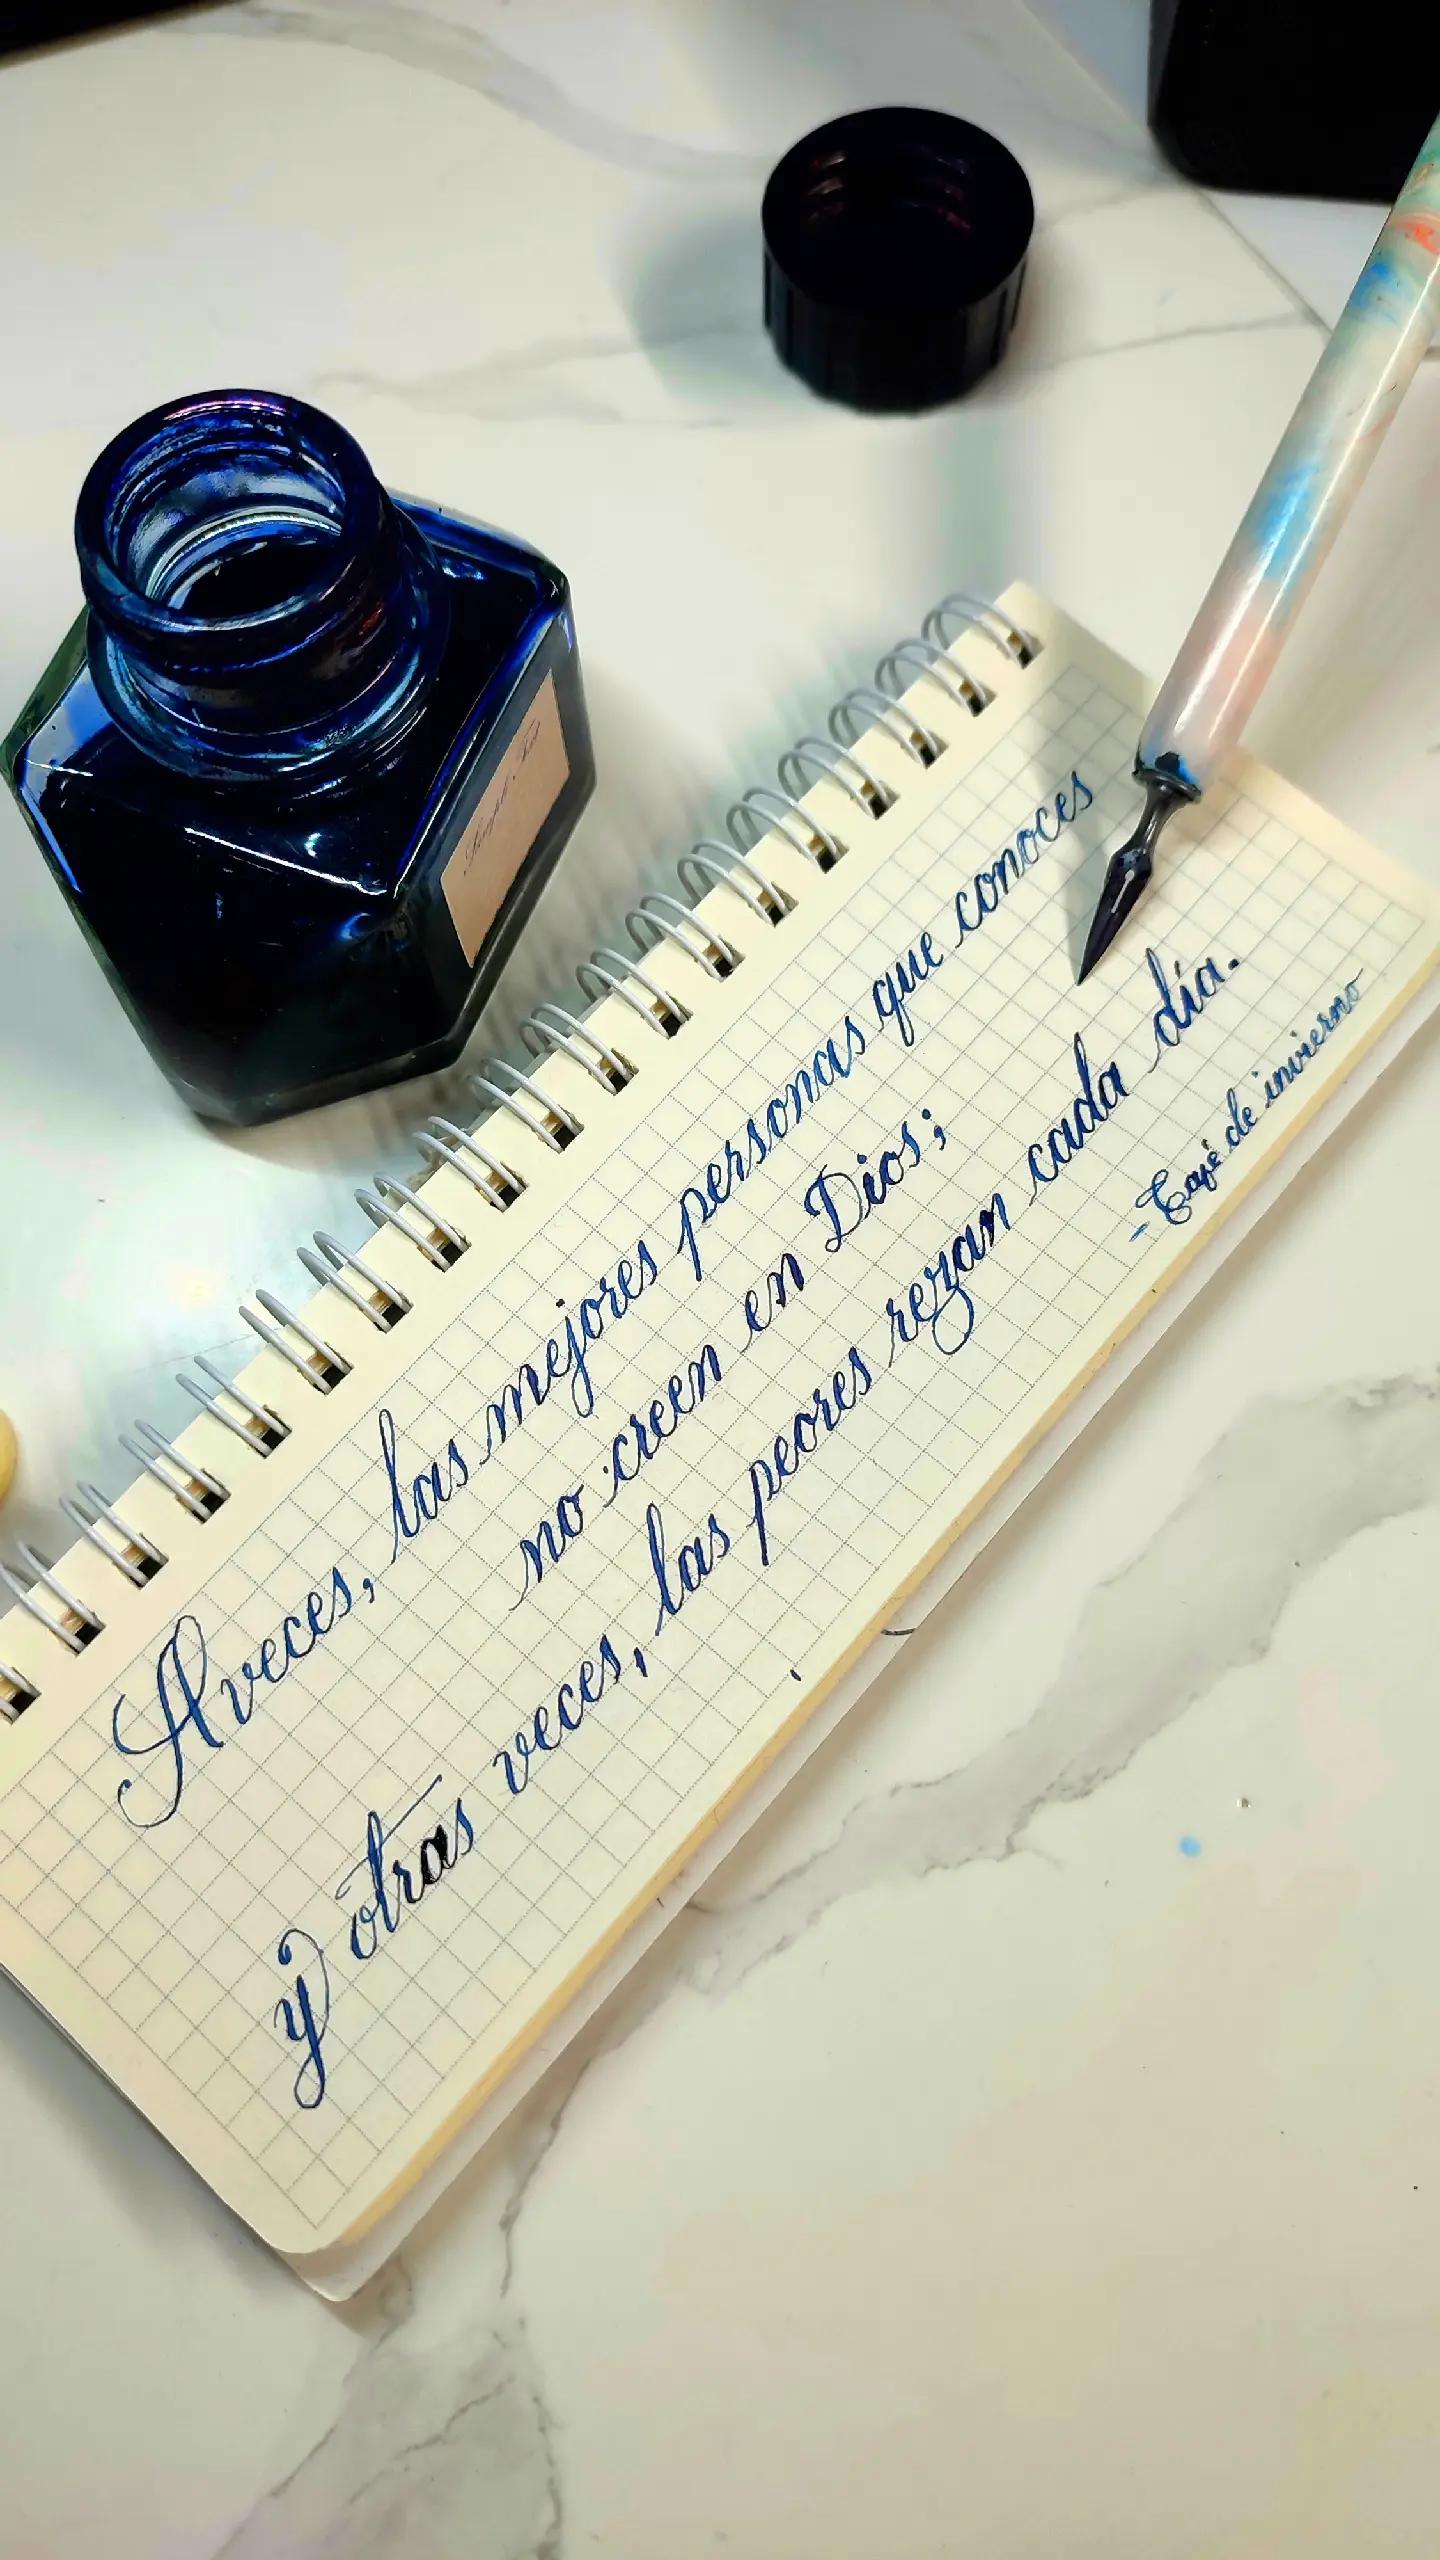 A veces, las mejores personas que conoces
no creen en Dios;
y otras veces, las peores rezan cada día.
- Café de invierno